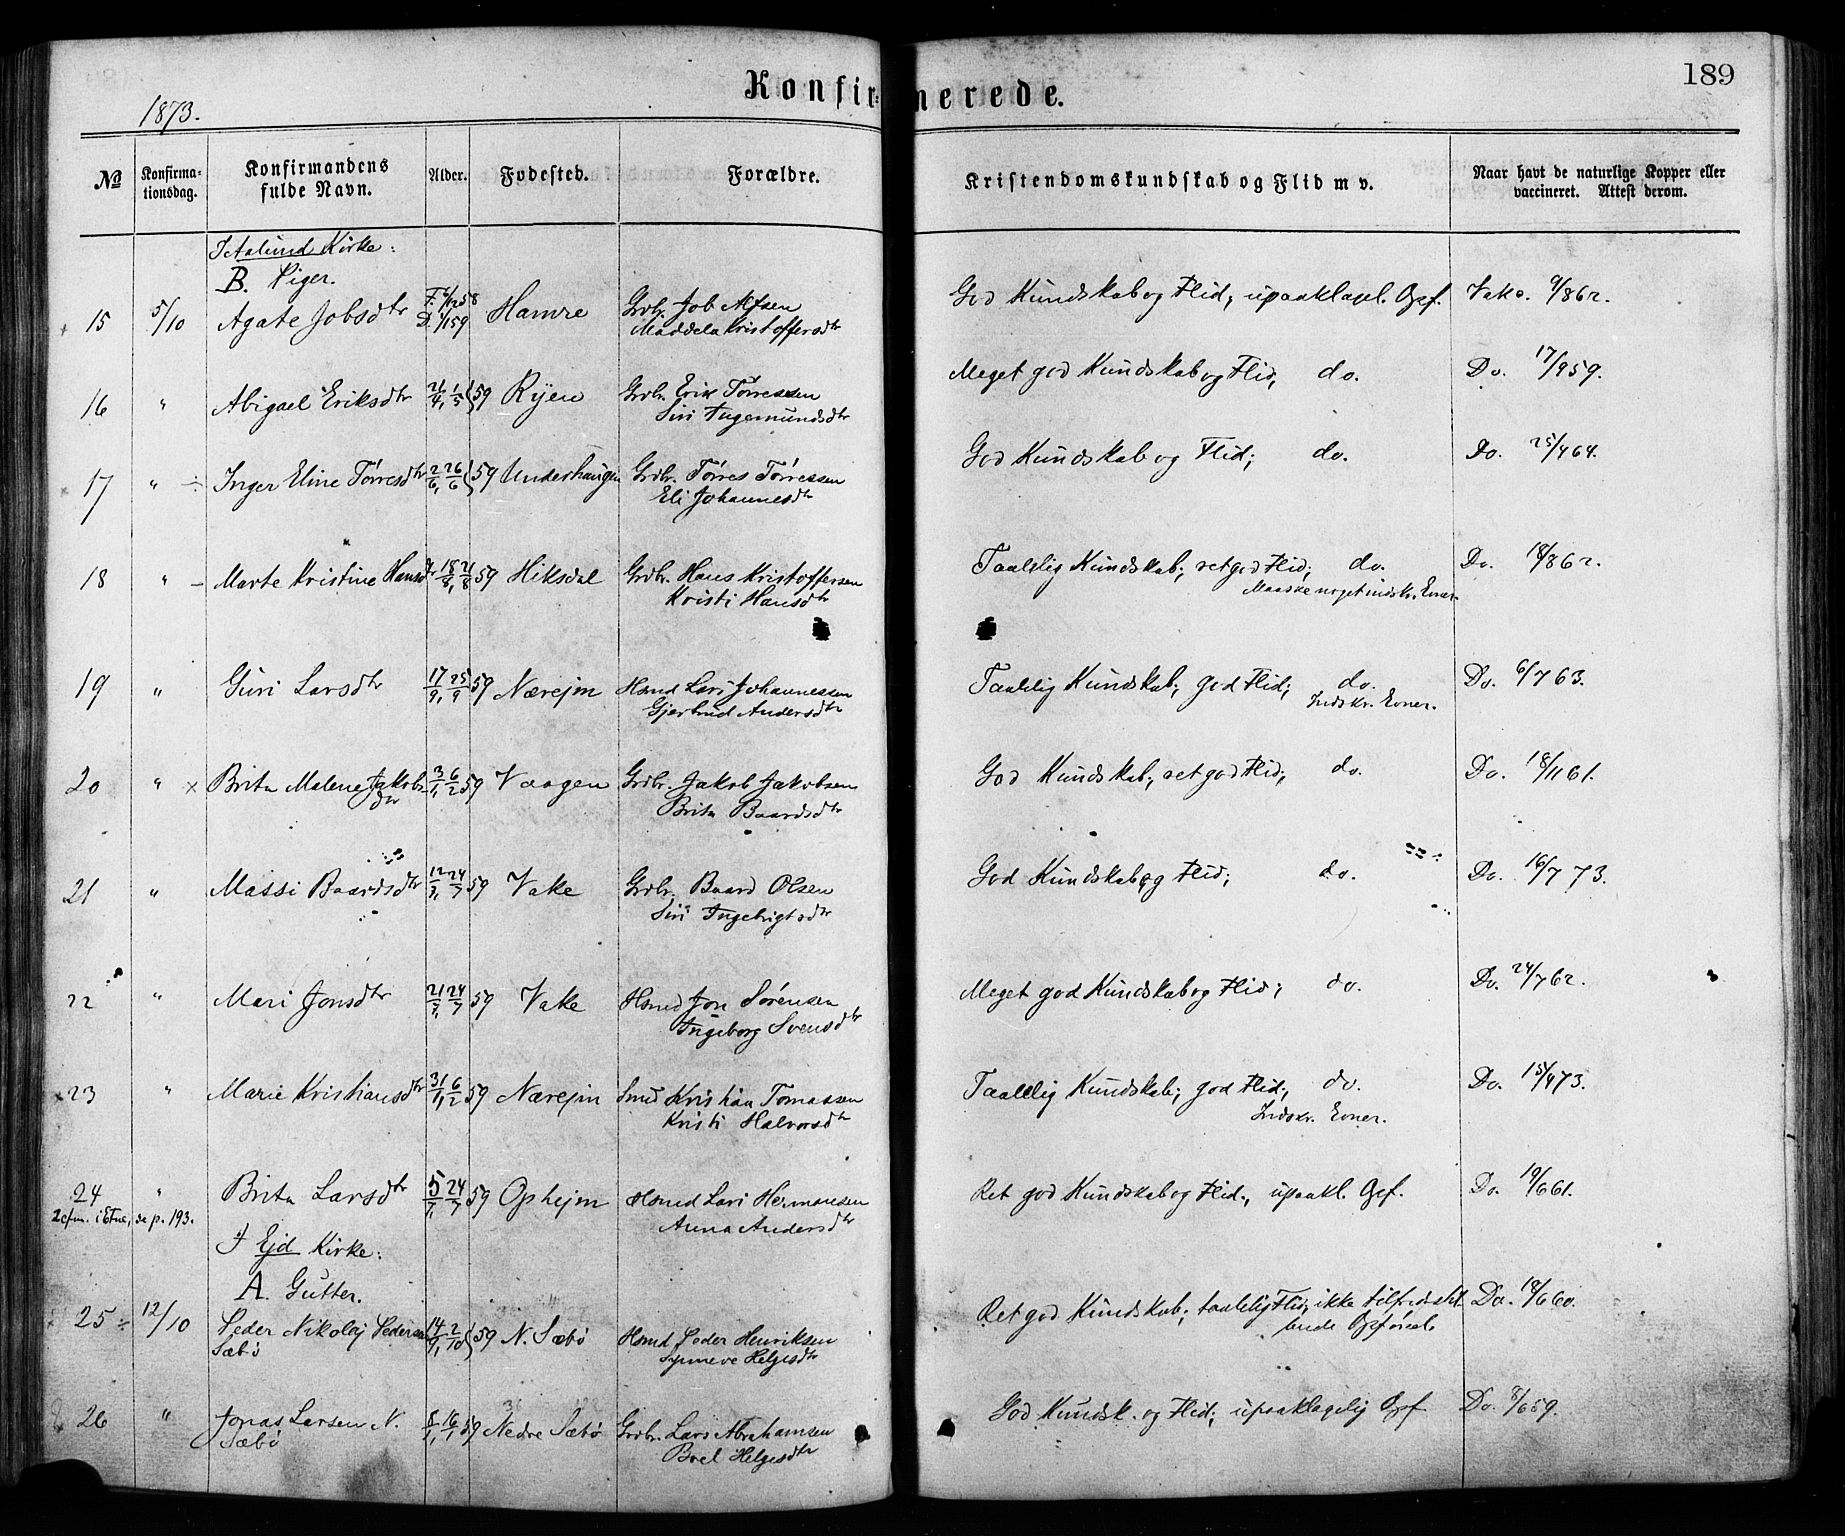 Konfirmerede.
189
1873.
№ Konfirmationsdag. Konfirmandens fulde Navn. Alder. Fødested. Forældre. Kristendomskundskab og Flid m v. Naar havt de naturlige Kopper eller vaccineret. Attest derom.
I Aalund Kirke:
B. Piger.
15 5/10 Agate Jobsdtr F. 4/12 58 D. 1/1 59 Hamre Grdbr. Job Alfsen God Kundskab og Flid; upaaklagel. Opf. Vake. 9/8 62.
Maddela Kristoffersdtr
16 " Abigael Eriksdtr 21/4, 1/5 59 Ryen Grdbr. Erik Tørressen Meget god Kundskab og Flid, do. Do. 17/9 59.
Siri Ingemundsdtr
17 " ÷ Inger Eline Tørresdtr 2/6, 26/6 59 Underhaugen Grdbr. Tørres Tørressen God Kundskab og Flid; do. Do. 25/4 64.
Eli Johannesdtr
18 " – Marte Kristine Hansdtr 18/8, 21/8 59 Hiksdal Grdbr. Hans Kristoffersen Taalelig Kundskab; ret god Flid; do. Do. 18/8 62.
Kristi Hansdtr Maaske noget indskr. Evner.
19 " Guri Larsdtr 17/9, 25/9 59 Nærejm Hsmd Lars Johannessen Taalelig Kundskab; god Flid; do. Do. 6/7 63.
Gjertrud Andersdtr Indskr. Evner.
20 " × Brita Malene Jakobsdtr 3/1, 6/2 59 Vaagen Grdbr. Jakob Jakobsen God Kundskab; ret god Flid; do. Do. 18/11 61.
Brita Baardsdtr
21 " Massi Baardsdtr 12/7, 24/7 59 Vake Grdbr. Baard Olsen God Kundskab og Flid; do. Do. 16/7 73.
Siri Ingebrigtsdtr
22 " Mari Jonsdtr 21/7, 24/7 59 Vake Hsmd Jon Sørensen Meget god Kundskab og Flid; do. Do. 24/7 62.
Ingeborg Svensdtr
23 " Marie Kristiansdtr 31/1, 6/2 59 Nærejm Smed Kristian Tomassen Taalelig Kundskab; god Flid; do. Do. 15/4 73.
Kristi Halvorsdtr Indskr. Evner.
24 " Brita Larsdtr 5/7, 24/7 59 Ophejm Hsmd Lars Hermansen Ret god Kundskab og Flid; upaakl. Opf. Do. 19/6 61.
i Etne, se p. 193. Anna Andersdtr
I Ejd Kirke:
A. Gutter.
25 ÷ 12/10 Peder Nikolej Pedersen 14/9, 2/10 59 N. Sæbø Hsmd Peder Henriksen Ret god Kundskab; taalelig Flid, ikke tilfredsstil Do. 19/6 60.
Sæbø Synneve Helgesdtr lende Opførsel.
26 " Jonas Larsen N. 8/1, 16/1 59 Nedre Sæbø Grdbr. Lars Abrahamsen God Kundsk. og Flid; upaaklagelig Opf. Do. 8/6 59.
Sæbø Boel Helgesdtr